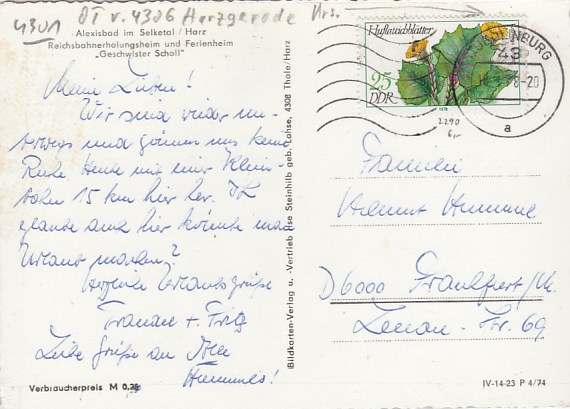 4301 OT v. 4306 Harzgerode Krs.
Alexisbad im Selketal / Harz
Reichsbahnerholungsheim und Ferienheim
„Geschwister Scholl"
Meine Lieben!
Wir sind wieder un-
terwegs und gönnen uns keine
Ruhe. Heute mit einer Klein-
bahn 15 km hier her. Ich
glaube auch hier könnte man
Urlaub machen?
Herzliche Urlaubsgrüße
+ Fritz
Liebe Grüße an Alle
Hummels!
Verbraucherpreis M 0,20
Bildkarten-Verlag u. -Vertrieb Ilse Steinhilb geb. Lohse, 4308 Thale/Harz
Huflattichblätter
25
DDR
1978
QUEDLINBURG
43
8-20
a
2290
Familie
Helmut Hummel
D 6000 Frankfurt/M.
Lenau-Str. 69
IV-14-23 P 4/74